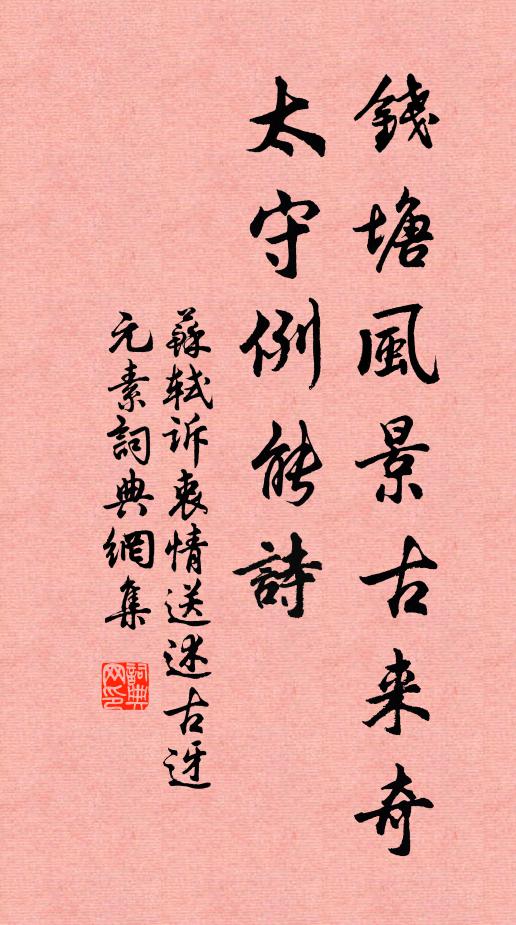 錢塘風景古来奇
太守例能詩
蘇軾訴衷情送述古迓
元素詞典網集
詞典
网印